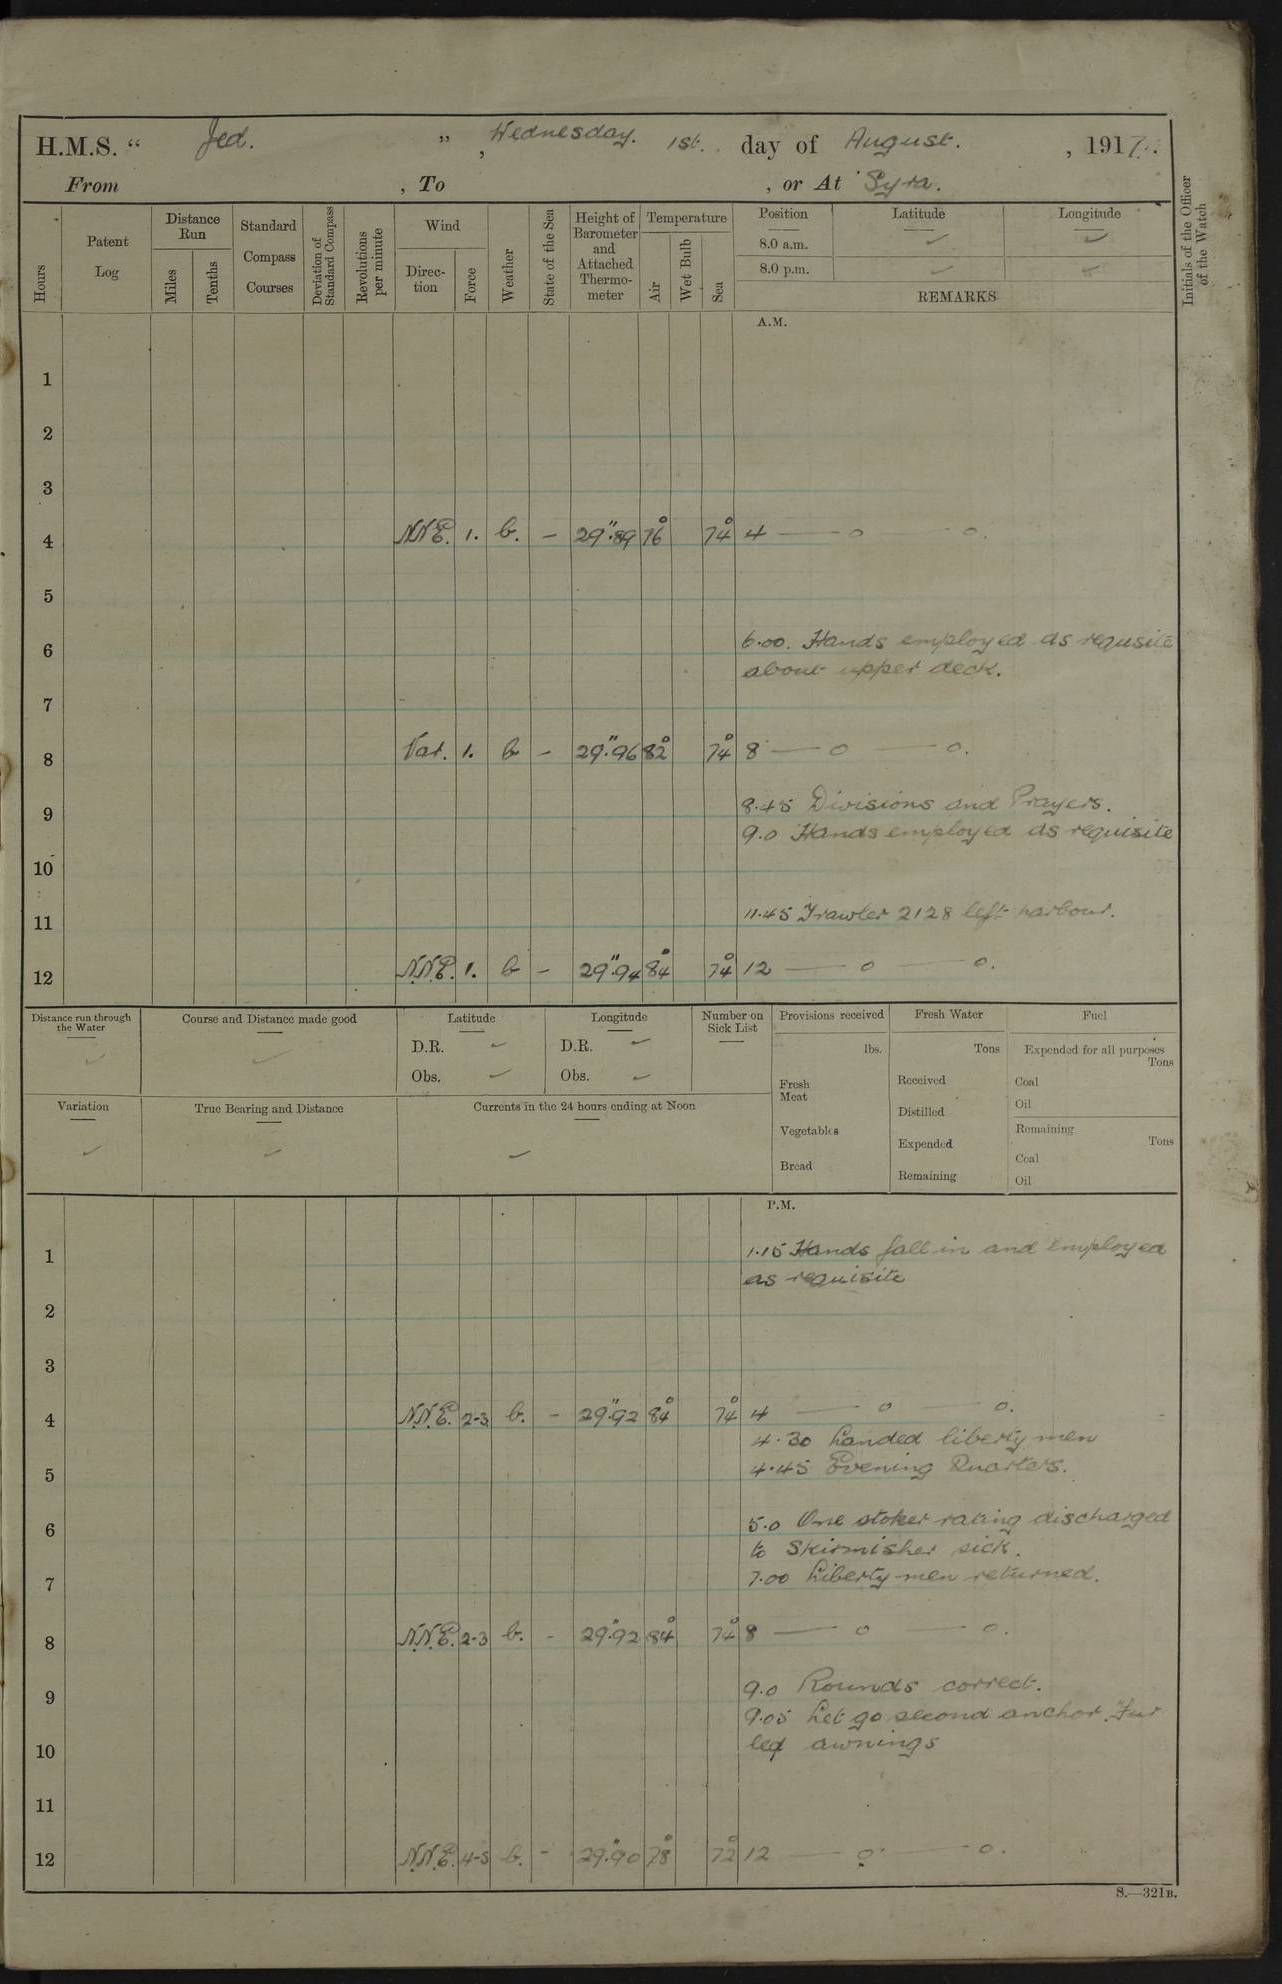 H.M.S. “ Jed. ” , Wednesday. 1st. day of August. , 1917.
From , To , or At Syra.
Hours
Patent Log
Distance Run
Miles
Tenths
Standard Compass Courses
Deviation of Standard Compass
Revolutions per minute
Wind
Direc-tion
Force
Weather
State of the Sea
Height of Barometer and Attached Thermo-meter
Temperature
Air
Wet Bulb
Sea
Position
Latitude
Longitude
8.0 a.m. ✓ ✓
8.0 p.m. ✓ ✓
REMARKS
Initials of the Officer of the Watch
A.M.
1
2
3
4 N.N.E. 1. b. – 29".89 76° 74° 4 — o — o.
5
6 6.00. Hands employed as requsite
about upper deck.
7
8 Var. 1. b – 29".96 82° 74° 8 — o — o.
8.45 Divisions and Prayers.
9
9.0 Hands employed as requisite
10
11.45 Trawler 2128 left harbour.
11
12 N.N.E. 1. b – 29".94 84° 74° 12 — o — o.
Distance run through the Water
✓
Course and Distance made good
✓
Latitude
D.R. ✓
Obs. ✓
Longitude
D.R. ✓
Obs. ✓
Number on Sick List
Provisions received
lbs.
Fresh Meat
Vegetables
Bread
Fresh Water
Tons
Received
Distilled
Expended
Remaining
Fuel
Expended for all purposes
Tons
Coal
Oil
Remaining
Tons
Coal
Oil
Variation
✓
True Bearing and Distance
✓
Currents in the 24 hours ending at Noon
✓
P.M.
1 1.15 Hands fall in and employed
as requisite
2
3
4 N.N.E. 2-3 b. – 29".92 84° 74° 4 — o — o.
4.30 Landed liberty men
4.45 Evening Quarters.
5
5.0 One stoker rating discharged
6
to Skirmisher sick.
7.00 Liberty men returned.
7
8 N.N.E. 2-3 b. – 29".92 84° 74° 8 — o — o.
9.0 Rounds correct.
9
9.05 Let go second anchor. Fur
led awnings
10
11
12 N.N.E. 4-5 b. – 29".90 78° 72° 12 — o — o.
S.—321B.